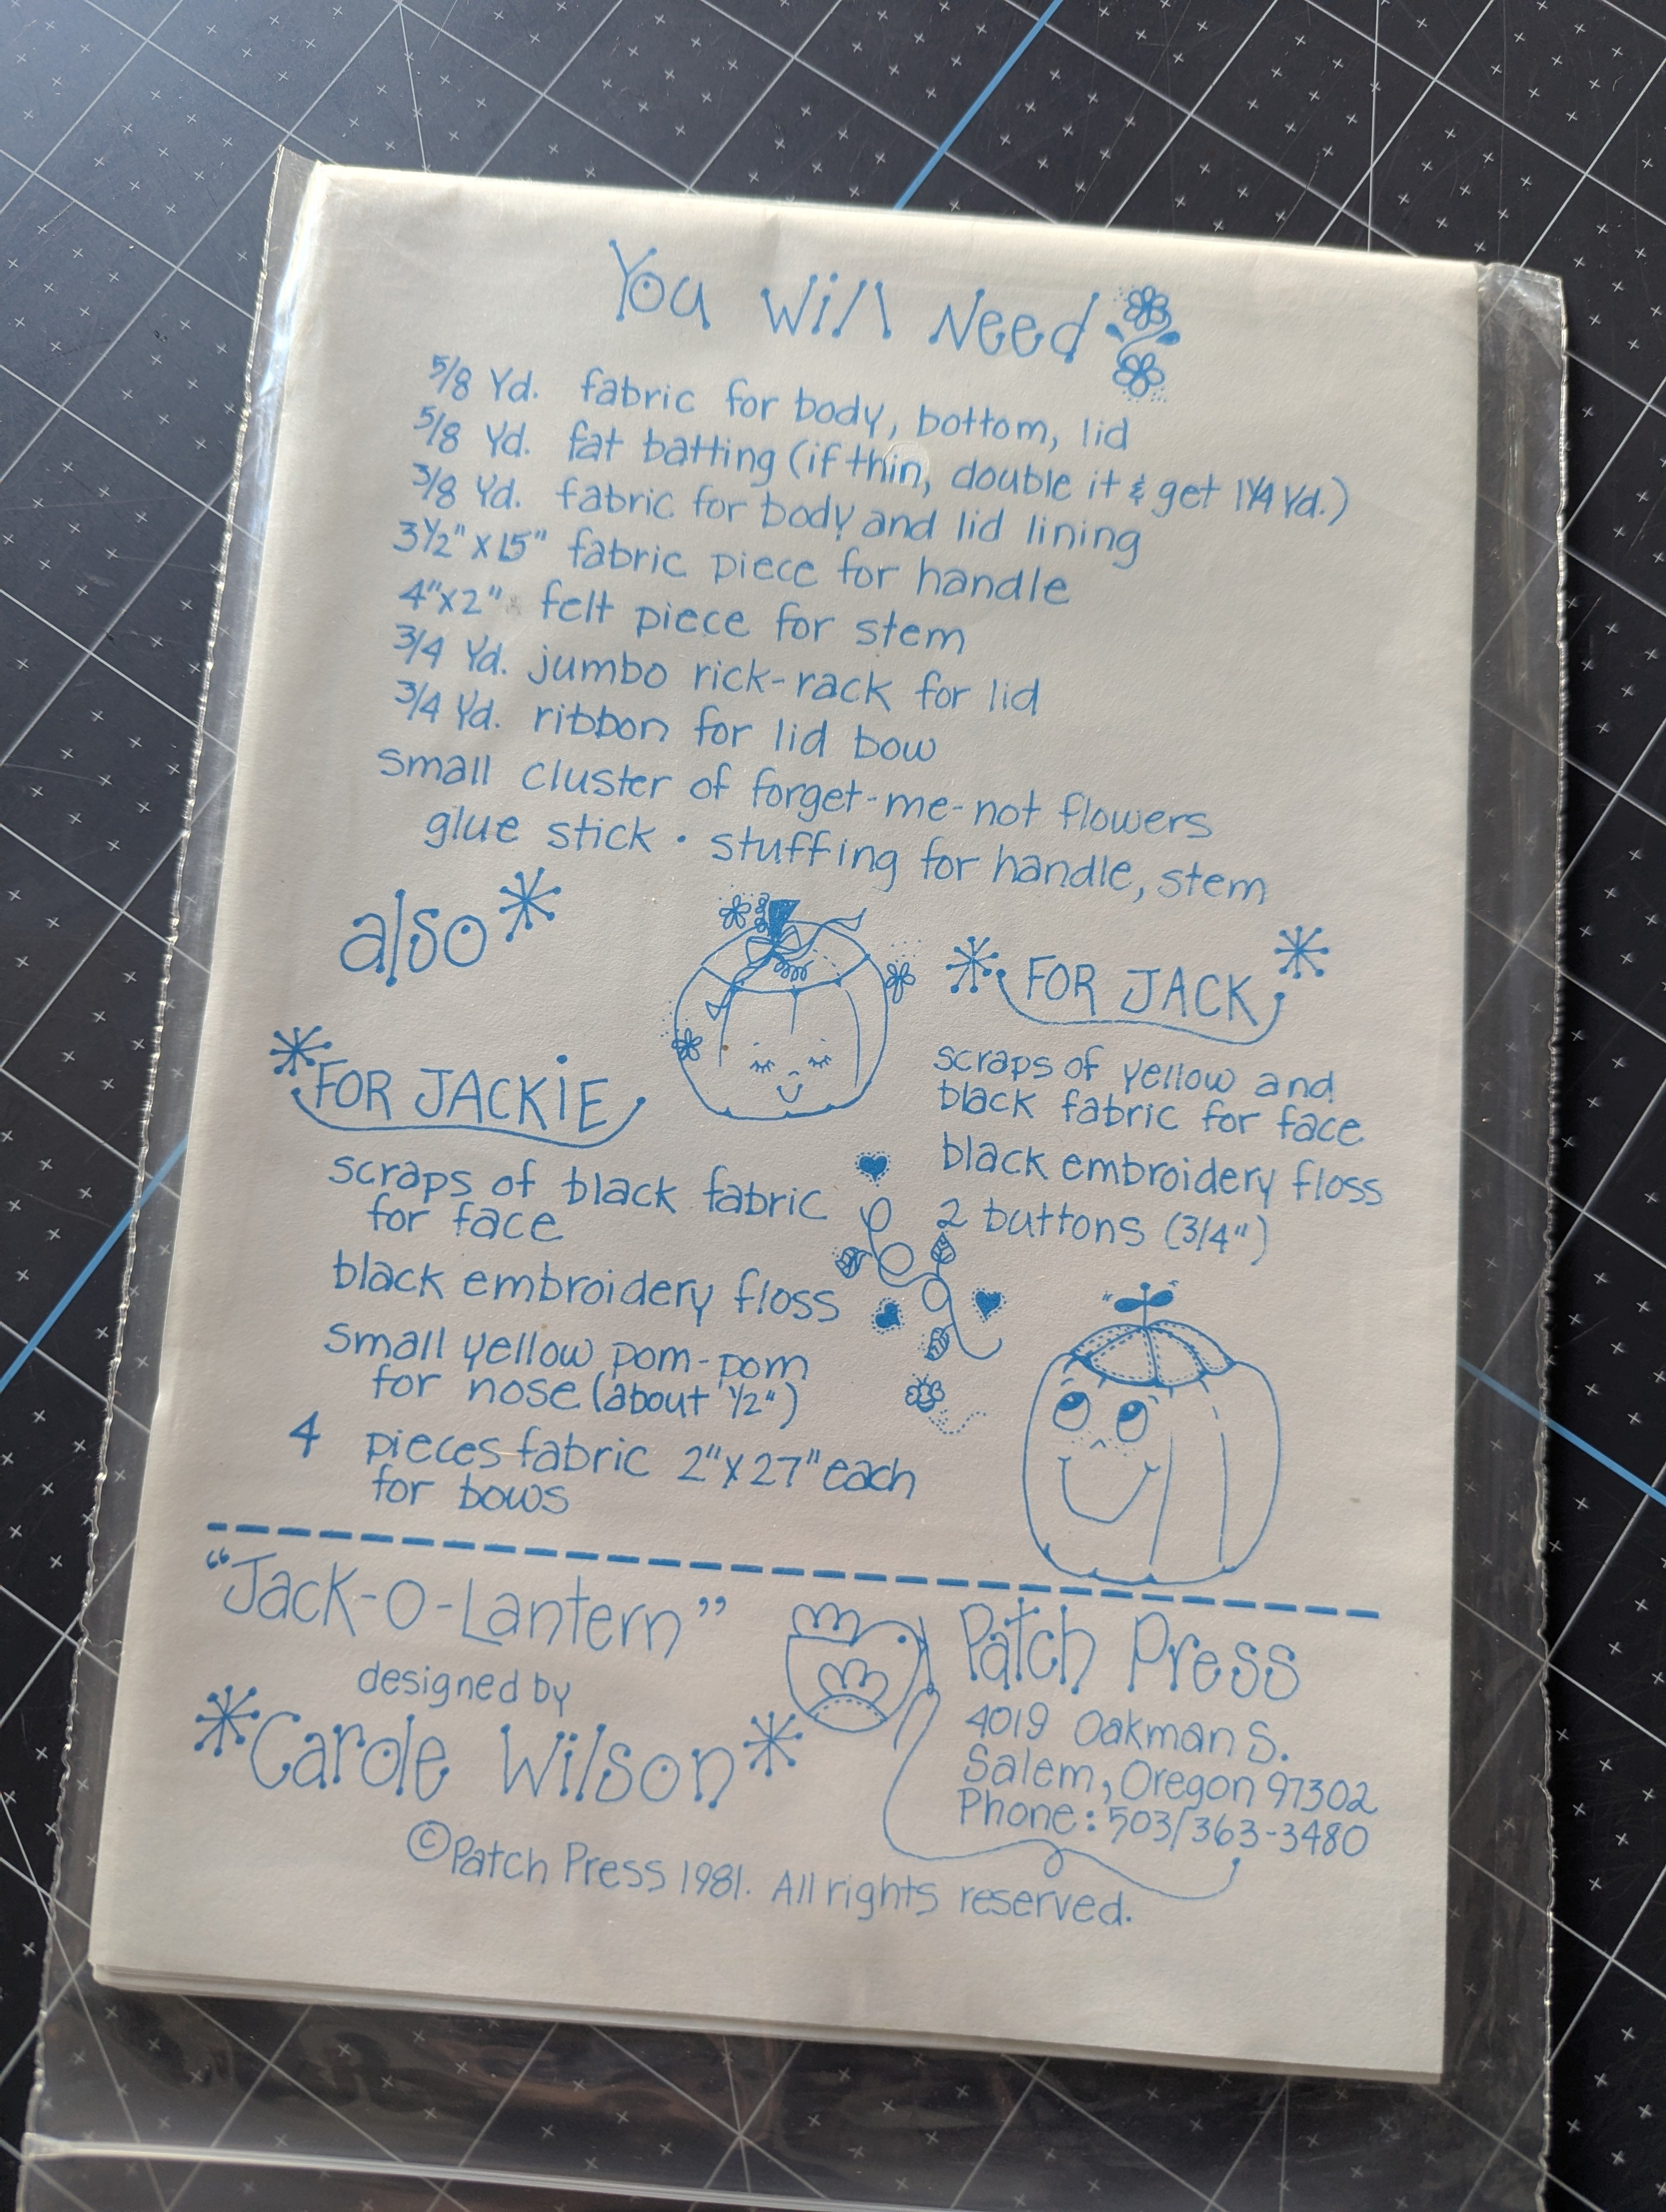 You Will Need
5/8 Yd. fabric for body, bottom, lid
5/8 Yd. fat batting (if thin, double it & get 1 1/4 Yd.)
3/8 Yd. fabric for body and lid lining
3 1/2" x 15" fabric piece for handle
4"x2" felt piece for stem
3/4 Yd. jumbo rick-rack for lid
3/4 Yd. ribbon for lid bow
small cluster of forget-me-not flowers
glue stick • stuffing for handle, stem
also*
*FOR JACKIE
scraps of black fabric
for face
black embroidery floss
small yellow pom-pom
for nose (about 1/2")
4 pieces fabric 2"x27" each
for bows
* FOR JACK *
scraps of yellow and
black fabric for face
black embroidery floss
2 buttons (3/4")
"Jack-O-Lantern"
designed by
*Carole Wilson*
Patch Press
4019 Oakman S.
Salem, Oregon 97302
Phone: 503/363-3480
©Patch Press 1981. All rights reserved.